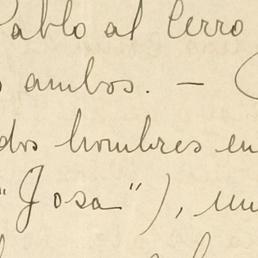 Pablo al Cerro
ambos. — (
dos hombres en
"Josa"), un